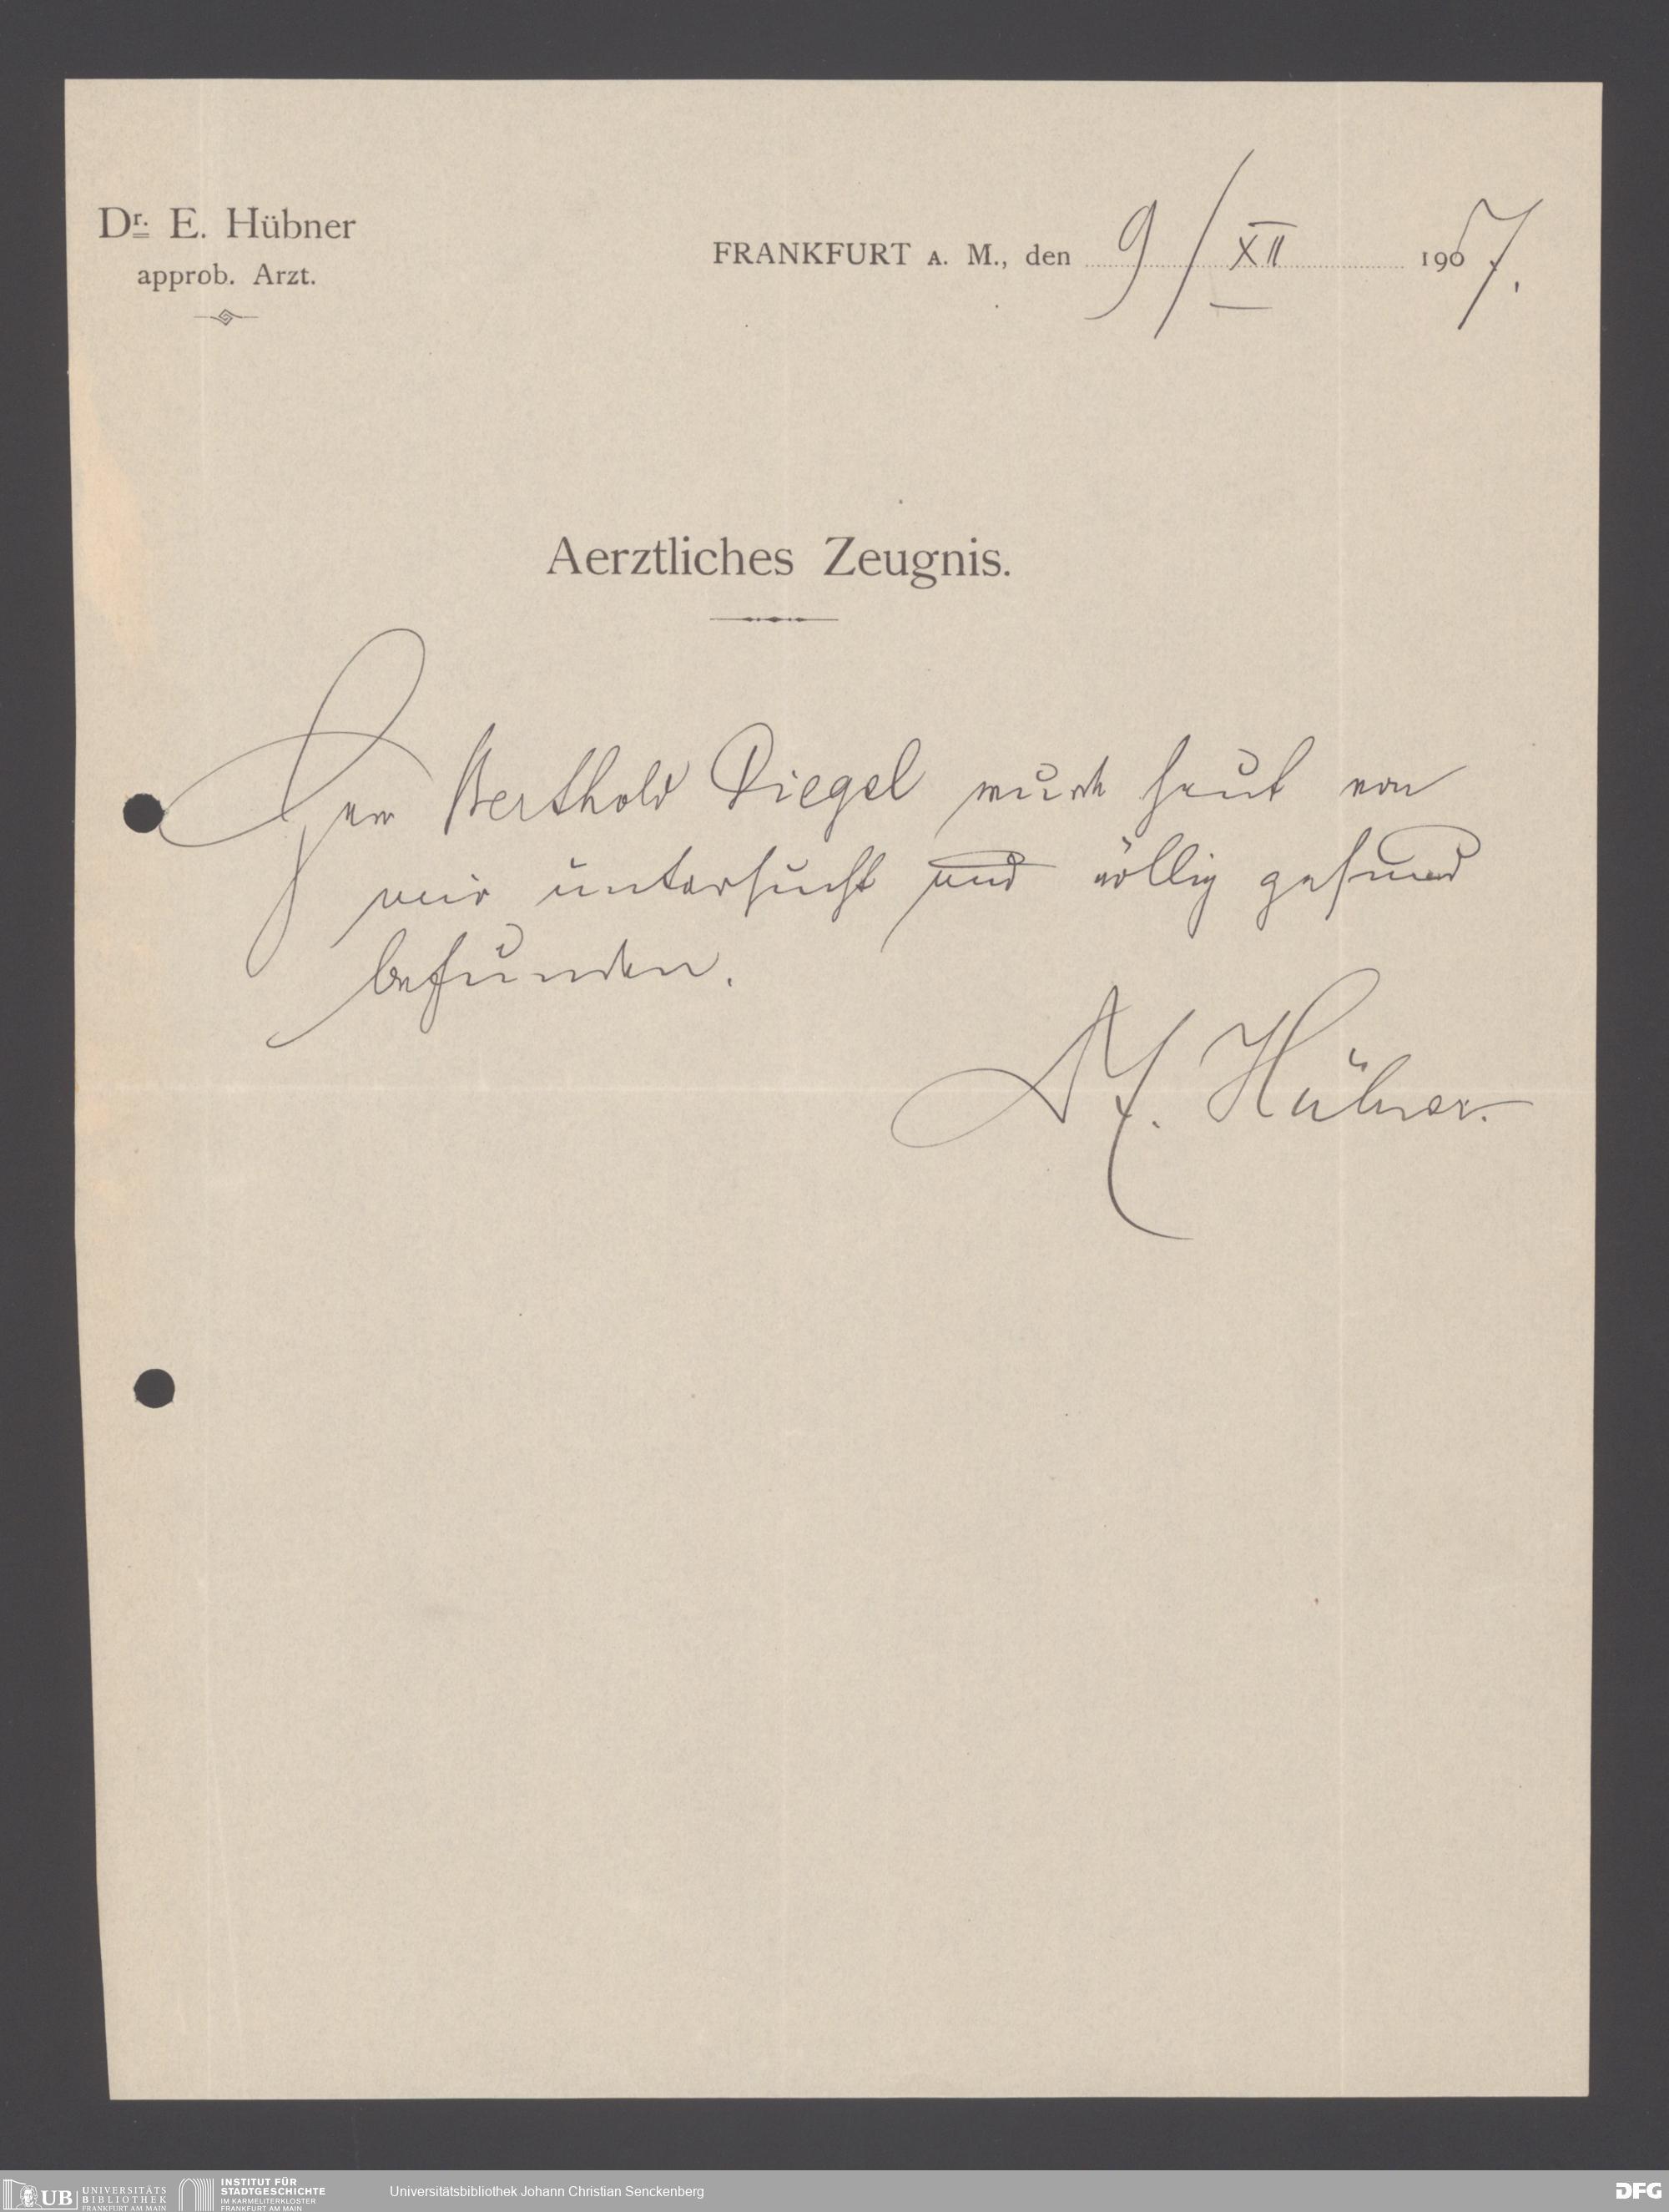 Dr. E. Hübner
approb. Arzt.
FRANKFURT A. M., den 9/XII 1907.
Aerztliches Zeugnis.
Herr Berthold Diegel wurde heut von
mir untersucht und völlig gesund
befunden.
Dr. Hübner.
UB UNIVERSITÄTS
BIBLIOTHEK
FRANKFURT AM MAIN
INSTITUT FÜR
STADTGESCHICHTE
IM KARMELITERKLOSTER
FRANKFURT AM MAIN
Universitätsbibliothek Johann Christian Senckenberg
DFG